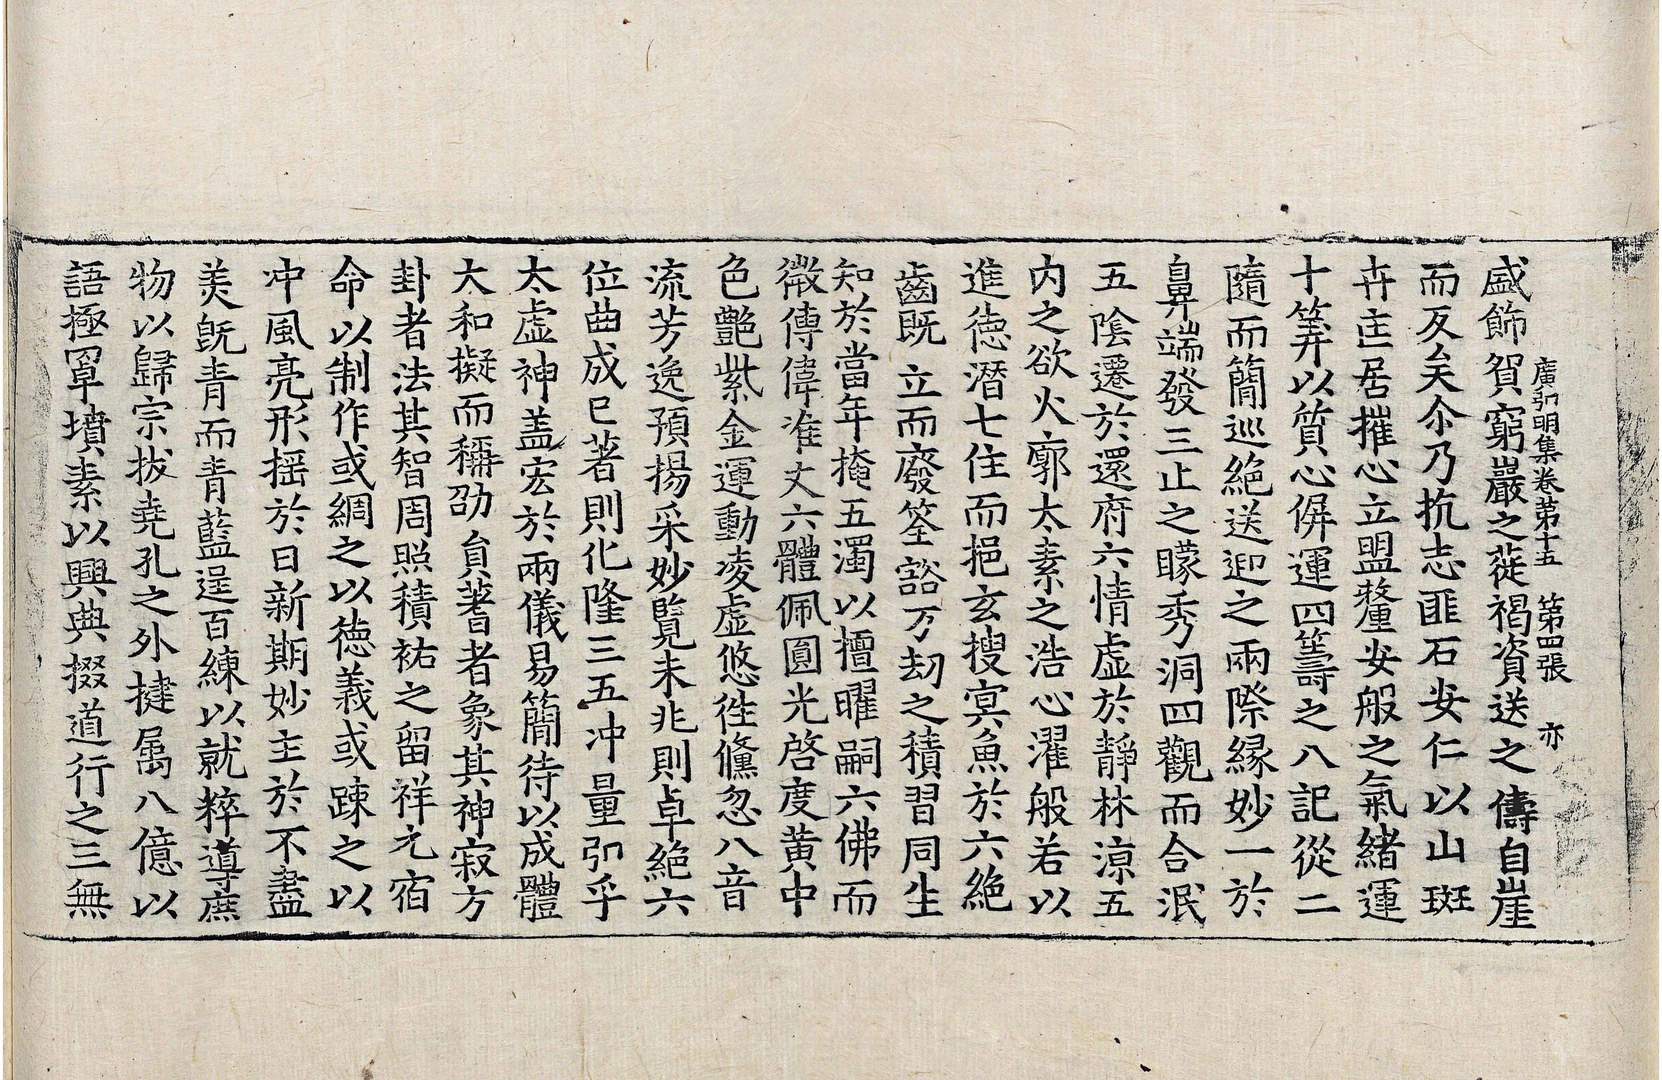 廣弘明集卷第十五 第四張 亦
盛飾賀窮巖之蓰褐資送之儔自崖
而反矣尒乃抗志匪石安仁以山斑
卉庄居摧心立盟釐安般之氣緒運
十筭以質心併運四籌之八記從二
隨而簡巡絕送迎之兩際縁妙一於
鼻端發三止之矇秀洞四觀而合泯
五陰遷於還府六情虛於靜林涼五
內之欲火廓太素之浩心濯般若以
進德潛七住而挹玄搜冥魚於六絕
齒既立而廢筌豁万劫之積習同生
知於當年掩五濁以擅曜嗣六佛而
徵傳偉准丈六體佩圓光啓度黃中
色艷紫金運動凌虛悠往儵忽八音
流芳逸預揚采妙覽未兆則卓絕六
位曲成已著則化隆三五冲量弘乎
太虛神盖宏於兩儀易簡待以成體
大和擬而稱劭員蓍者象其神寂方
卦者法其智周照積祐之留祥元宿
命以制作或綢之以德義或踈之以
冲風亮形搖於日新期妙主於不盡
美既青而青藍逞百練以就粹導庶
物以歸宗拔堯孔之外揵屬八億以
語極罩墳素以興典掇道行之三無